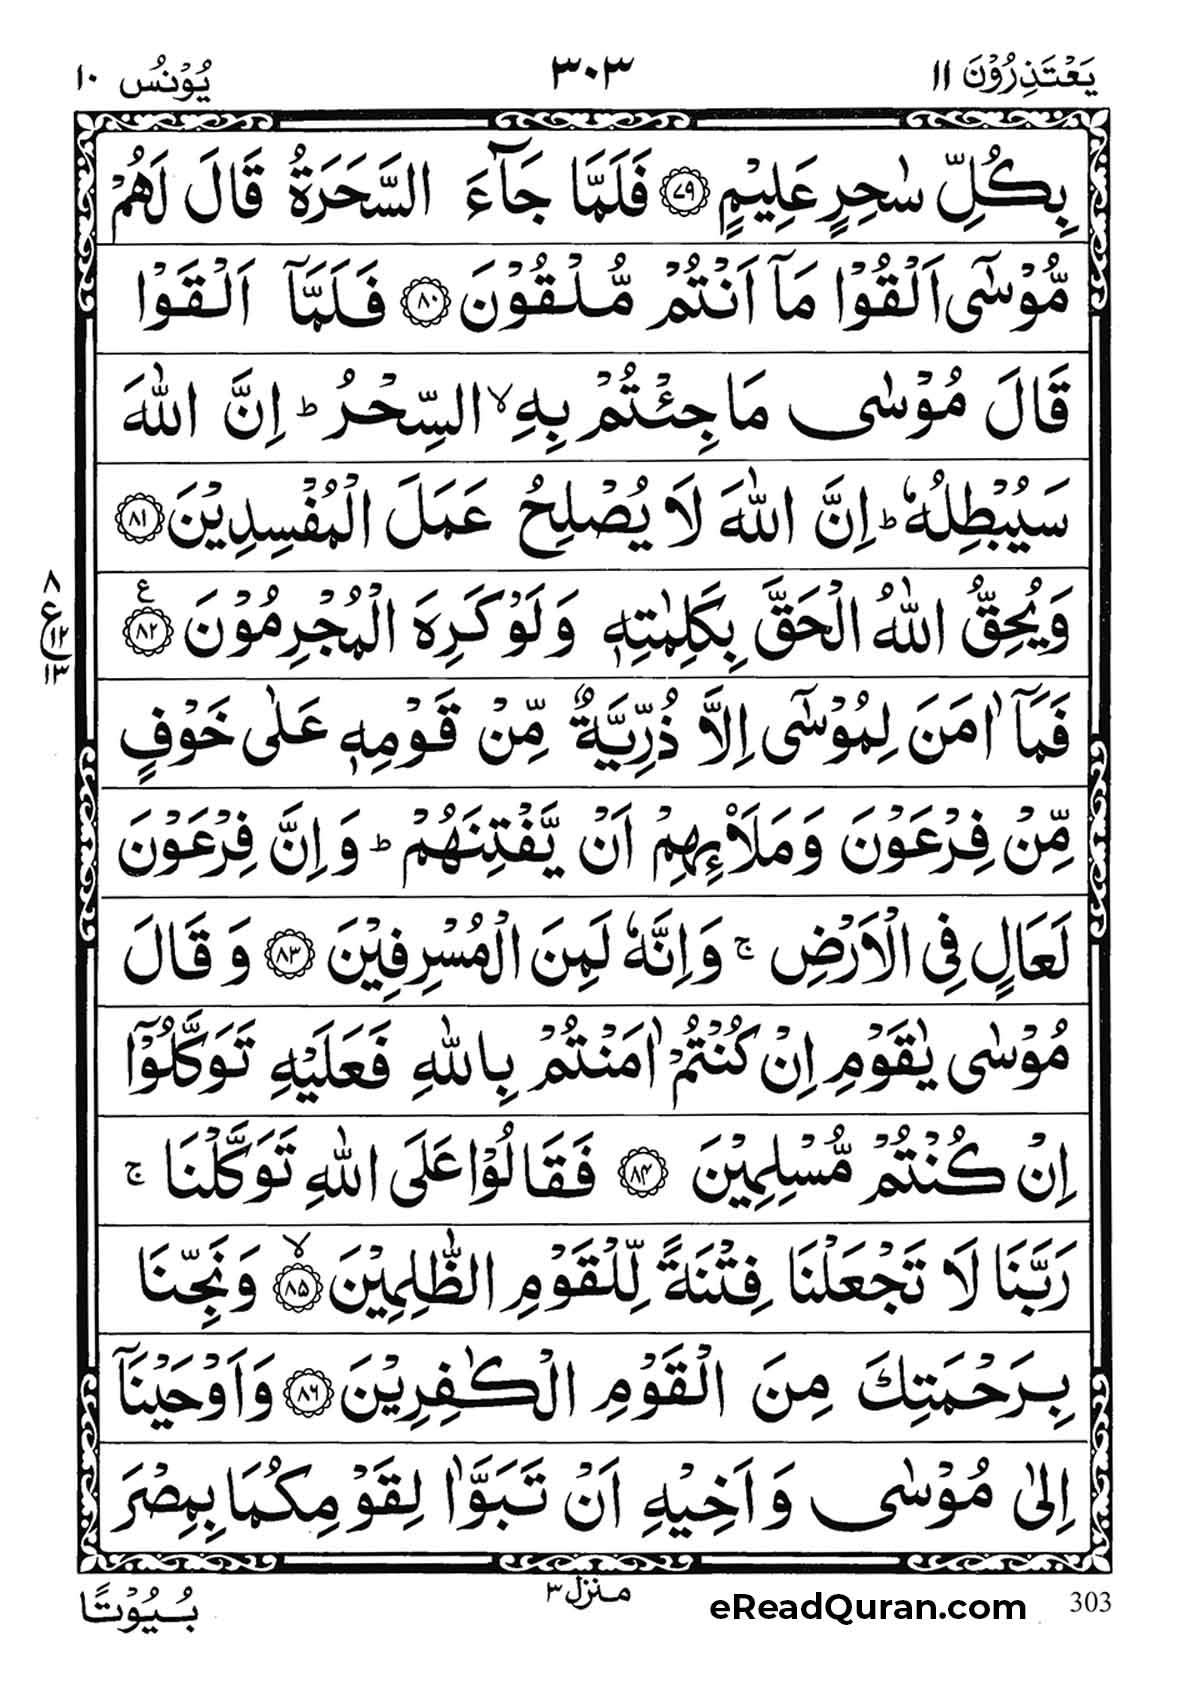 يَعْتَذِرُوْنَ ١١ ٣٠٣ يُوْنُس ١٠
بِكُلِّ سٰحِرٍ عَلِيْمٍ ﴿٧٩﴾ فَلَمَّا جَآءَ السَّحَرَةُ قَالَ لَهُمْ
مُّوْسٰٓى اَلْقُوْا مَآ اَنْتُمْ مُّلْقُوْنَ ﴿٨٠﴾ فَلَمَّآ اَلْقَوْا
قَالَ مُوْسٰى مَا جِئْتُمْ بِهِ ۙ السِّحْرُ ؕ اِنَّ اللّٰهَ
سَيُبْطِلُهٗ ؕ اِنَّ اللّٰهَ لَا يُصْلِحُ عَمَلَ الْمُفْسِدِيْنَ ﴿٨١﴾
وَيُحِقُّ اللّٰهُ الْحَقَّ بِكَلِمٰتِهٖ وَلَوْ كَرِهَ الْمُجْرِمُوْنَ ﴿٨٢﴾ ع
٨
ع ١٢
١٣
فَمَآ اٰمَنَ لِمُوْسٰٓى اِلَّا ذُرِّيَّةٌ مِّنْ قَوْمِهٖ عَلٰى خَوْفٍ
مِّنْ فِرْعَوْنَ وَمَلَا۟ئِهِمْ اَنْ يَّفْتِنَهُمْ ؕ وَاِنَّ فِرْعَوْنَ
لَعَالٍ فِى الْاَرْضِ ۚ وَاِنَّهٗ لَمِنَ الْمُسْرِفِيْنَ ﴿٨٣﴾ وَقَالَ
مُوْسٰى يٰقَوْمِ اِنْ كُنْتُمْ اٰمَنْتُمْ بِاللّٰهِ فَعَلَيْهِ تَوَكَّلُوْٓا
اِنْ كُنْتُمْ مُّسْلِمِيْنَ ﴿٨٤﴾ فَقَالُوْا عَلَى اللّٰهِ تَوَكَّلْنَا ۚ
رَبَّنَا لَا تَجْعَلْنَا فِتْنَةً لِّلْقَوْمِ الظّٰلِمِيْنَ ﴿٨٥﴾ ۙ وَنَجِّنَا
بِرَحْمَتِكَ مِنَ الْقَوْمِ الْكٰفِرِيْنَ ﴿٨٦﴾ وَاَوْحَيْنَآ
اِلٰى مُوْسٰى وَاَخِيْهِ اَنْ تَبَوَّاٰ لِقَوْمِكُمَا بِمِصْرَ
بُيُوْتًا
منزل ٣
eReadQuran.com
303